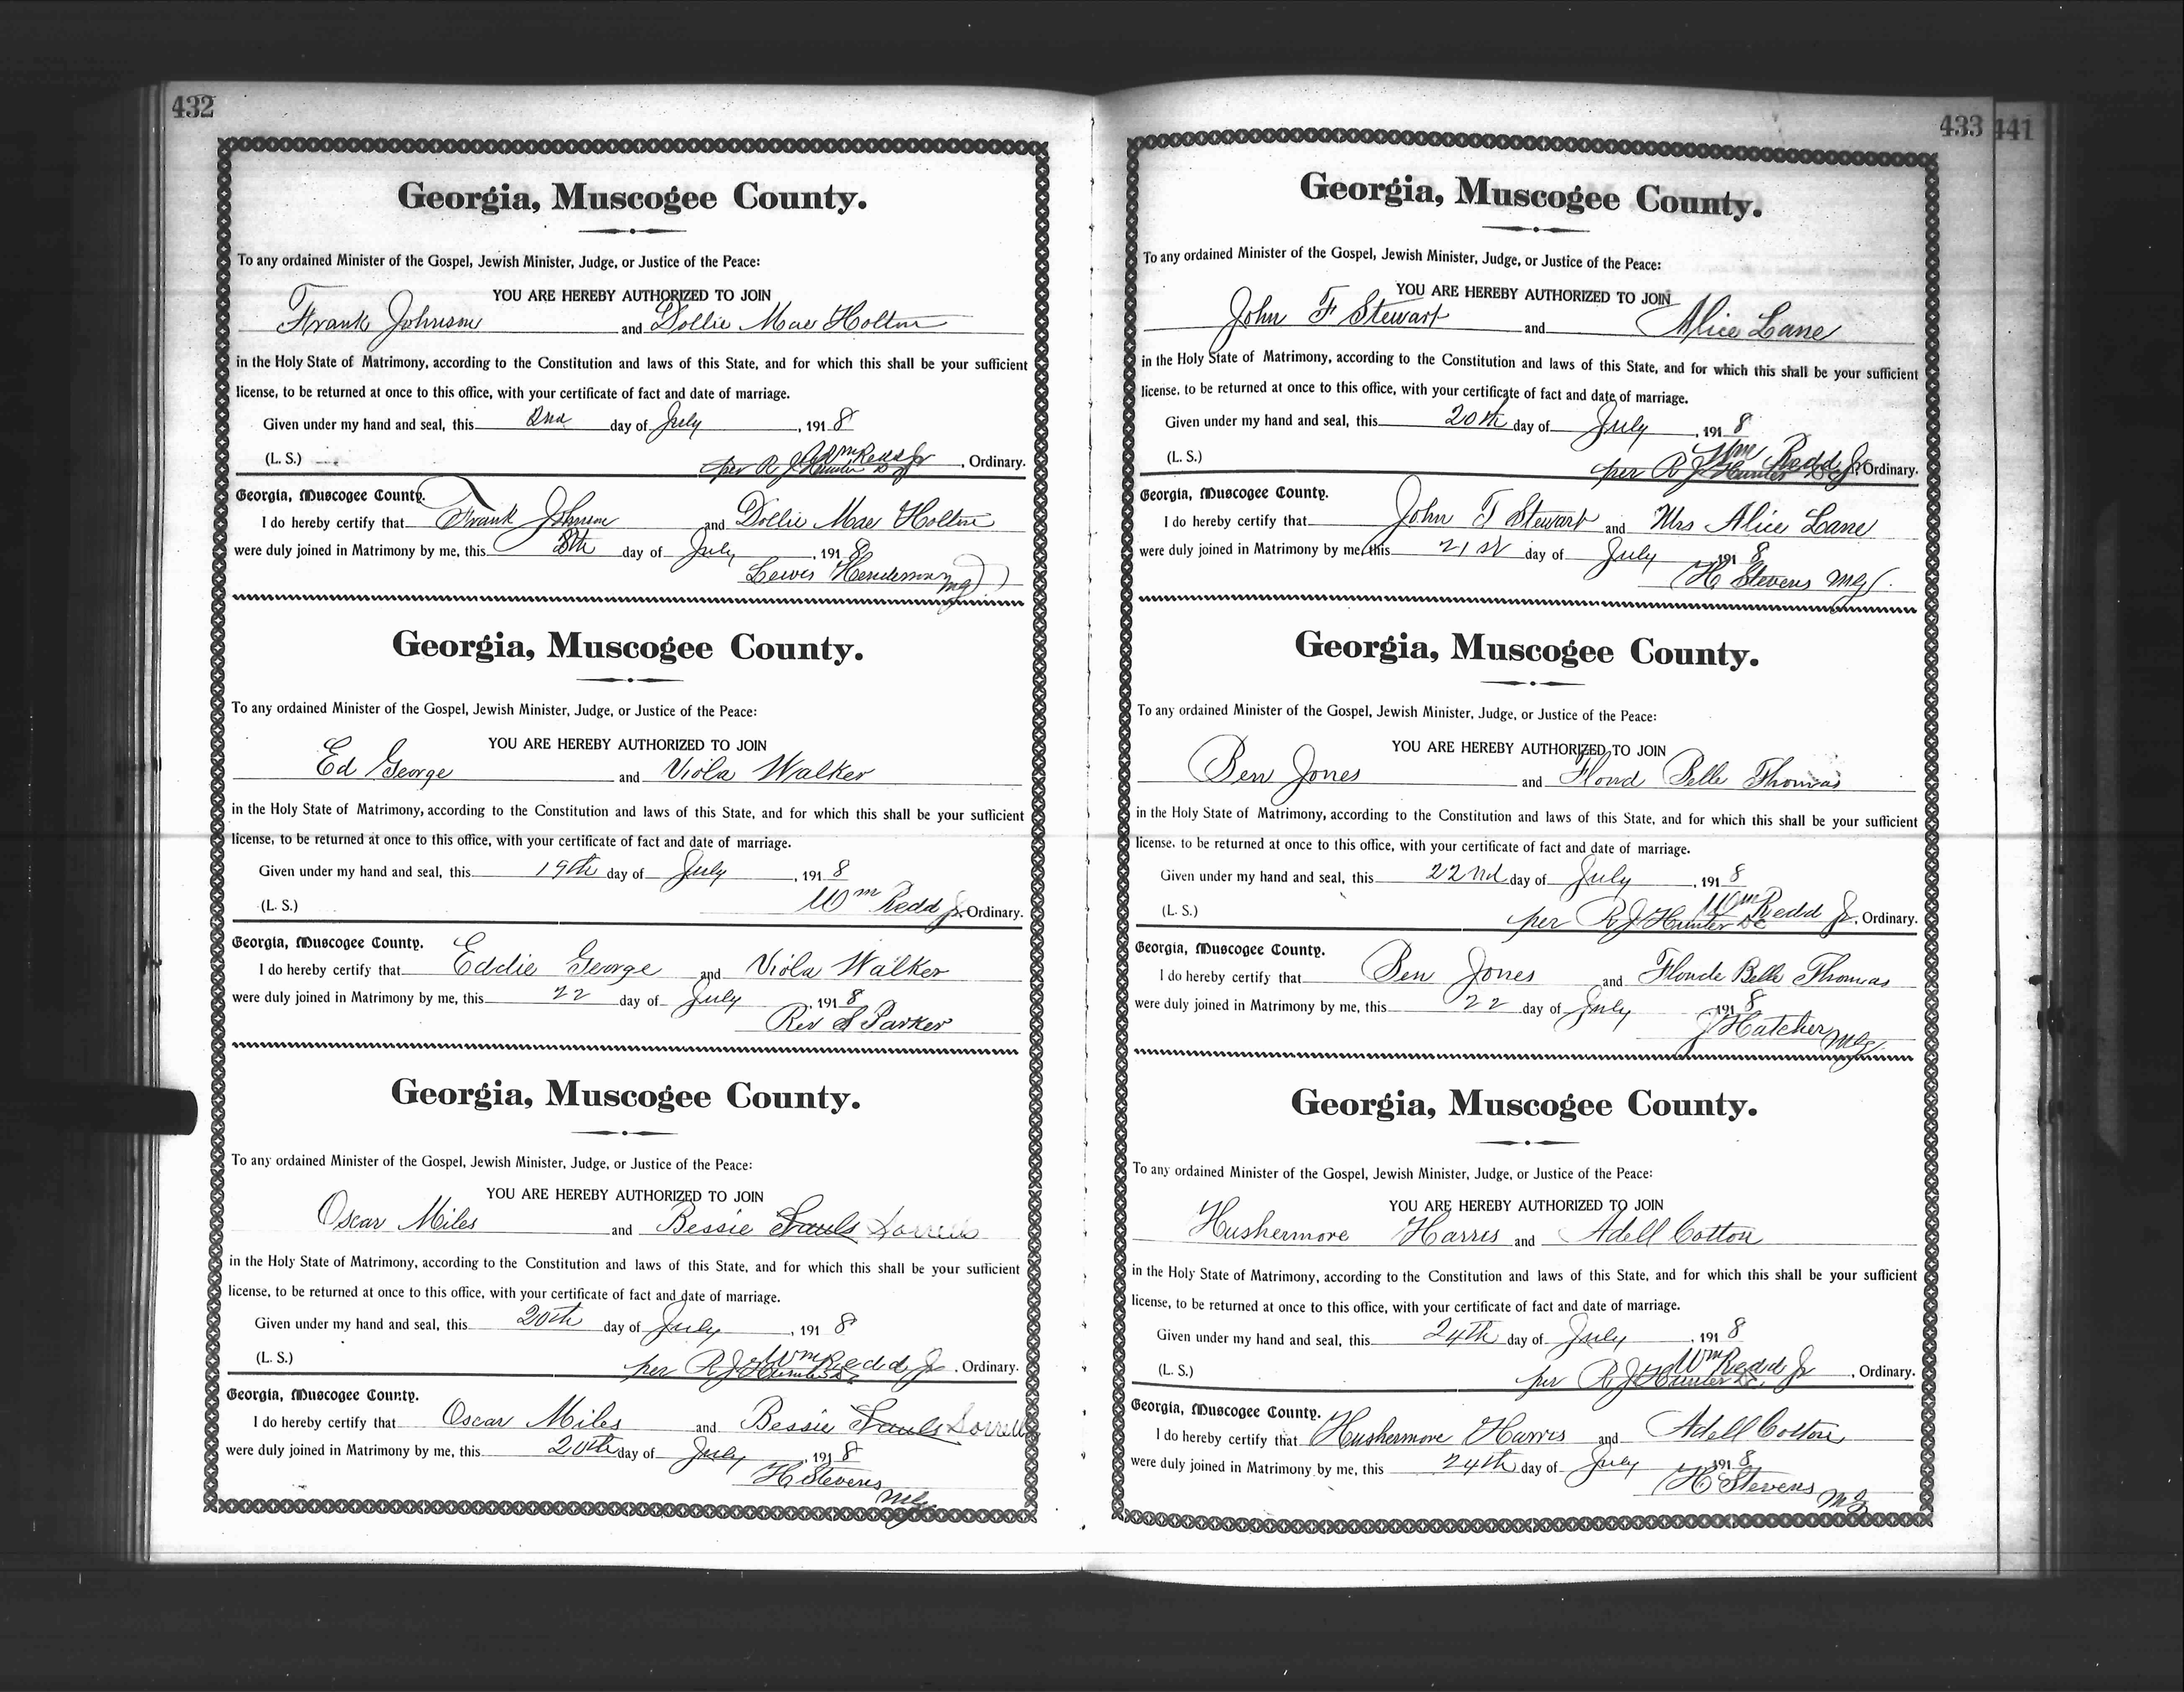 432
Georgia, Muscogee County.
To any ordained Minister of the Gospel, Jewish Minister, Judge, or Justice of the Peace:
YOU ARE HEREBY AUTHORIZED TO JOIN
Frank Johnson and Dollie Mae Holton
in the Holy State of Matrimony, according to the Constitution and laws of this State, and for which this shall be your sufficient
license, to be returned at once to this office, with your certificate of fact and date of marriage.
Given under my hand and seal, this 2nd day of July, 1918
(L. S.) Wm Redd Jr, Ordinary.
per R J Hunter
Georgia, Muscogee County.
I do hereby certify that Frank Johnson and Dollie Mae Holton
were duly joined in Matrimony by me, this 8th day of July, 1918
Lewis Henderson mg
Georgia, Muscogee County.
To any ordained Minister of the Gospel, Jewish Minister, Judge, or Justice of the Peace:
YOU ARE HEREBY AUTHORIZED TO JOIN
Ed George and Viola Walker
in the Holy State of Matrimony, according to the Constitution and laws of this State, and for which this shall be your sufficient
license, to be returned at once to this office, with your certificate of fact and date of marriage.
Given under my hand and seal, this 19th day of July, 1918
(L. S.) Wm Redd Jr. Ordinary.
Georgia, Muscogee County.
I do hereby certify that Eddie George and Viola Walker
were duly joined in Matrimony by me, this 22 day of July, 1918
Rev S Parker
Georgia, Muscogee County.
To any ordained Minister of the Gospel, Jewish Minister, Judge, or Justice of the Peace:
YOU ARE HEREBY AUTHORIZED TO JOIN
Oscar Miles and Bessie Sauls Sorrells
in the Holy State of Matrimony, according to the Constitution and laws of this State, and for which this shall be your sufficient
license, to be returned at once to this office, with your certificate of fact and date of marriage.
Given under my hand and seal, this 20th day of July, 1918
(L. S.) Wm Redd Jr, Ordinary.
per R J Hunter
Georgia, Muscogee County.
I do hereby certify that Oscar Miles and Bessie Sauls Sorrells
were duly joined in Matrimony by me, this 20th day of July, 1918
H Stevens
mg
433
441
Georgia, Muscogee County.
To any ordained Minister of the Gospel, Jewish Minister, Judge, or Justice of the Peace:
YOU ARE HEREBY AUTHORIZED TO JOIN
John F Stewart and Alice Lane
in the Holy State of Matrimony, according to the Constitution and laws of this State, and for which this shall be your sufficient
license, to be returned at once to this office, with your certificate of fact and date of marriage.
Given under my hand and seal, this 20th day of July, 1918
(L. S.) Wm Redd Jr. Ordinary.
per R J Hunter
Georgia, Muscogee County.
I do hereby certify that John T Stewart and Mrs Alice Lane
were duly joined in Matrimony by me, this 21st day of July 1918
H Stevens mg
Georgia, Muscogee County.
To any ordained Minister of the Gospel, Jewish Minister, Judge, or Justice of the Peace:
YOU ARE HEREBY AUTHORIZED TO JOIN
Ben Jones and Flond Belle Thomas
in the Holy State of Matrimony, according to the Constitution and laws of this State, and for which this shall be your sufficient
license, to be returned at once to this office, with your certificate of fact and date of marriage.
Given under my hand and seal, this 22nd day of July, 1918
(L. S.) Wm Redd Jr. Ordinary.
per R J Hunter DC
Georgia, Muscogee County.
I do hereby certify that Ben Jones and Flonde Belle Thomas
were duly joined in Matrimony by me, this 22 day of July 1918
J Hatcher mg
Georgia, Muscogee County.
To any ordained Minister of the Gospel, Jewish Minister, Judge, or Justice of the Peace:
YOU ARE HEREBY AUTHORIZED TO JOIN
Hushermore Harris and Adell Cotton
in the Holy State of Matrimony, according to the Constitution and laws of this State, and for which this shall be your sufficient
license, to be returned at once to this office, with your certificate of fact and date of marriage.
Given under my hand and seal, this 24th day of July, 1918
(L. S.) Wm Redd Jr, Ordinary.
per R J Hunter DC
Georgia, Muscogee County.
I do hereby certify that Hushermore Harris and Adell Cotton
were duly joined in Matrimony by me, this 24th day of July 1918
H Stevens mg